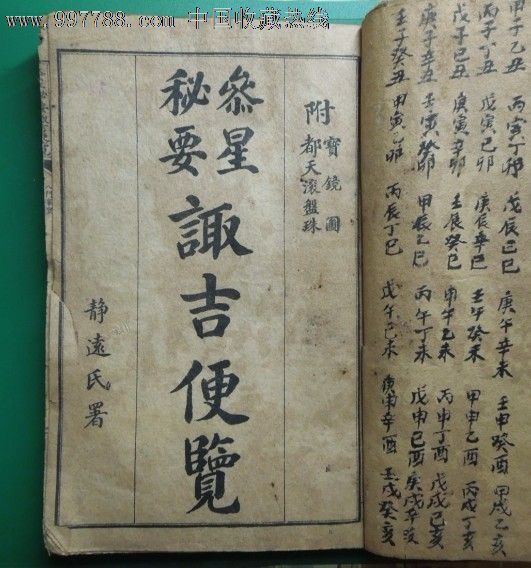 www.997788.com 中国收藏热线
甲子乙丑 丙寅丁卯 戊辰己巳 庚午辛未 壬申癸酉 甲戌乙亥
丙子丁丑 戊寅己卯 庚辰辛巳 壬午癸未 甲申乙酉 丙戌丁亥
戊子己丑 庚寅辛卯 壬辰癸巳 甲午乙未 丙申丁酉 戊戌己亥
庚子辛丑 壬寅癸卯 甲辰乙巳 丙午丁未 戊申己酉 庚戌辛亥
壬子癸丑 甲寅乙卯 丙辰丁巳 戊午己未 庚申辛酉 壬戌癸亥
附
寶鏡圖
都天滾盤珠
叅星
秘要
諏吉便覽
靜遠氏署